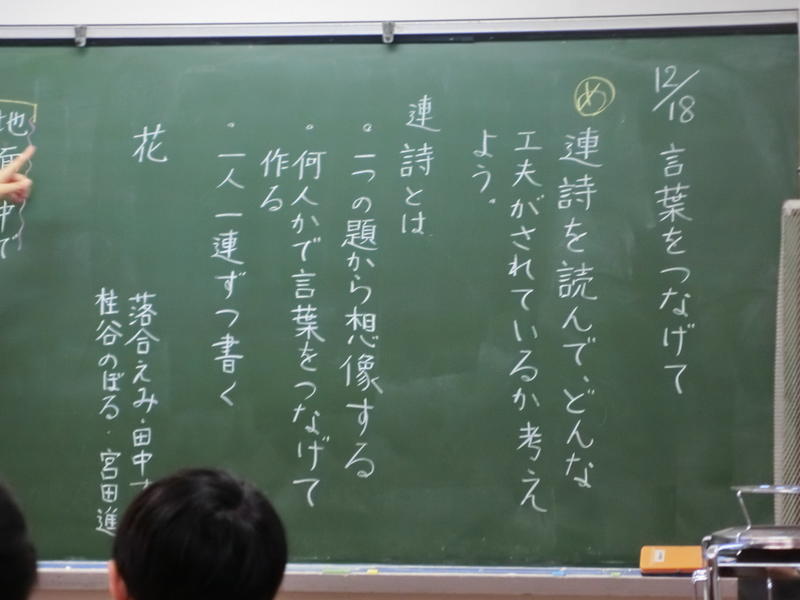 12/18 言葉をつなげて
め 連詩を読んで、どんな
工夫がされているか考え
よう。
連詩とは
・一つの題から想像する
・何人かで言葉をつなげて
作る
・一人一連ずつ書く
花
落合えみ・田中
桂谷のぼる・宮田進
地面 中で